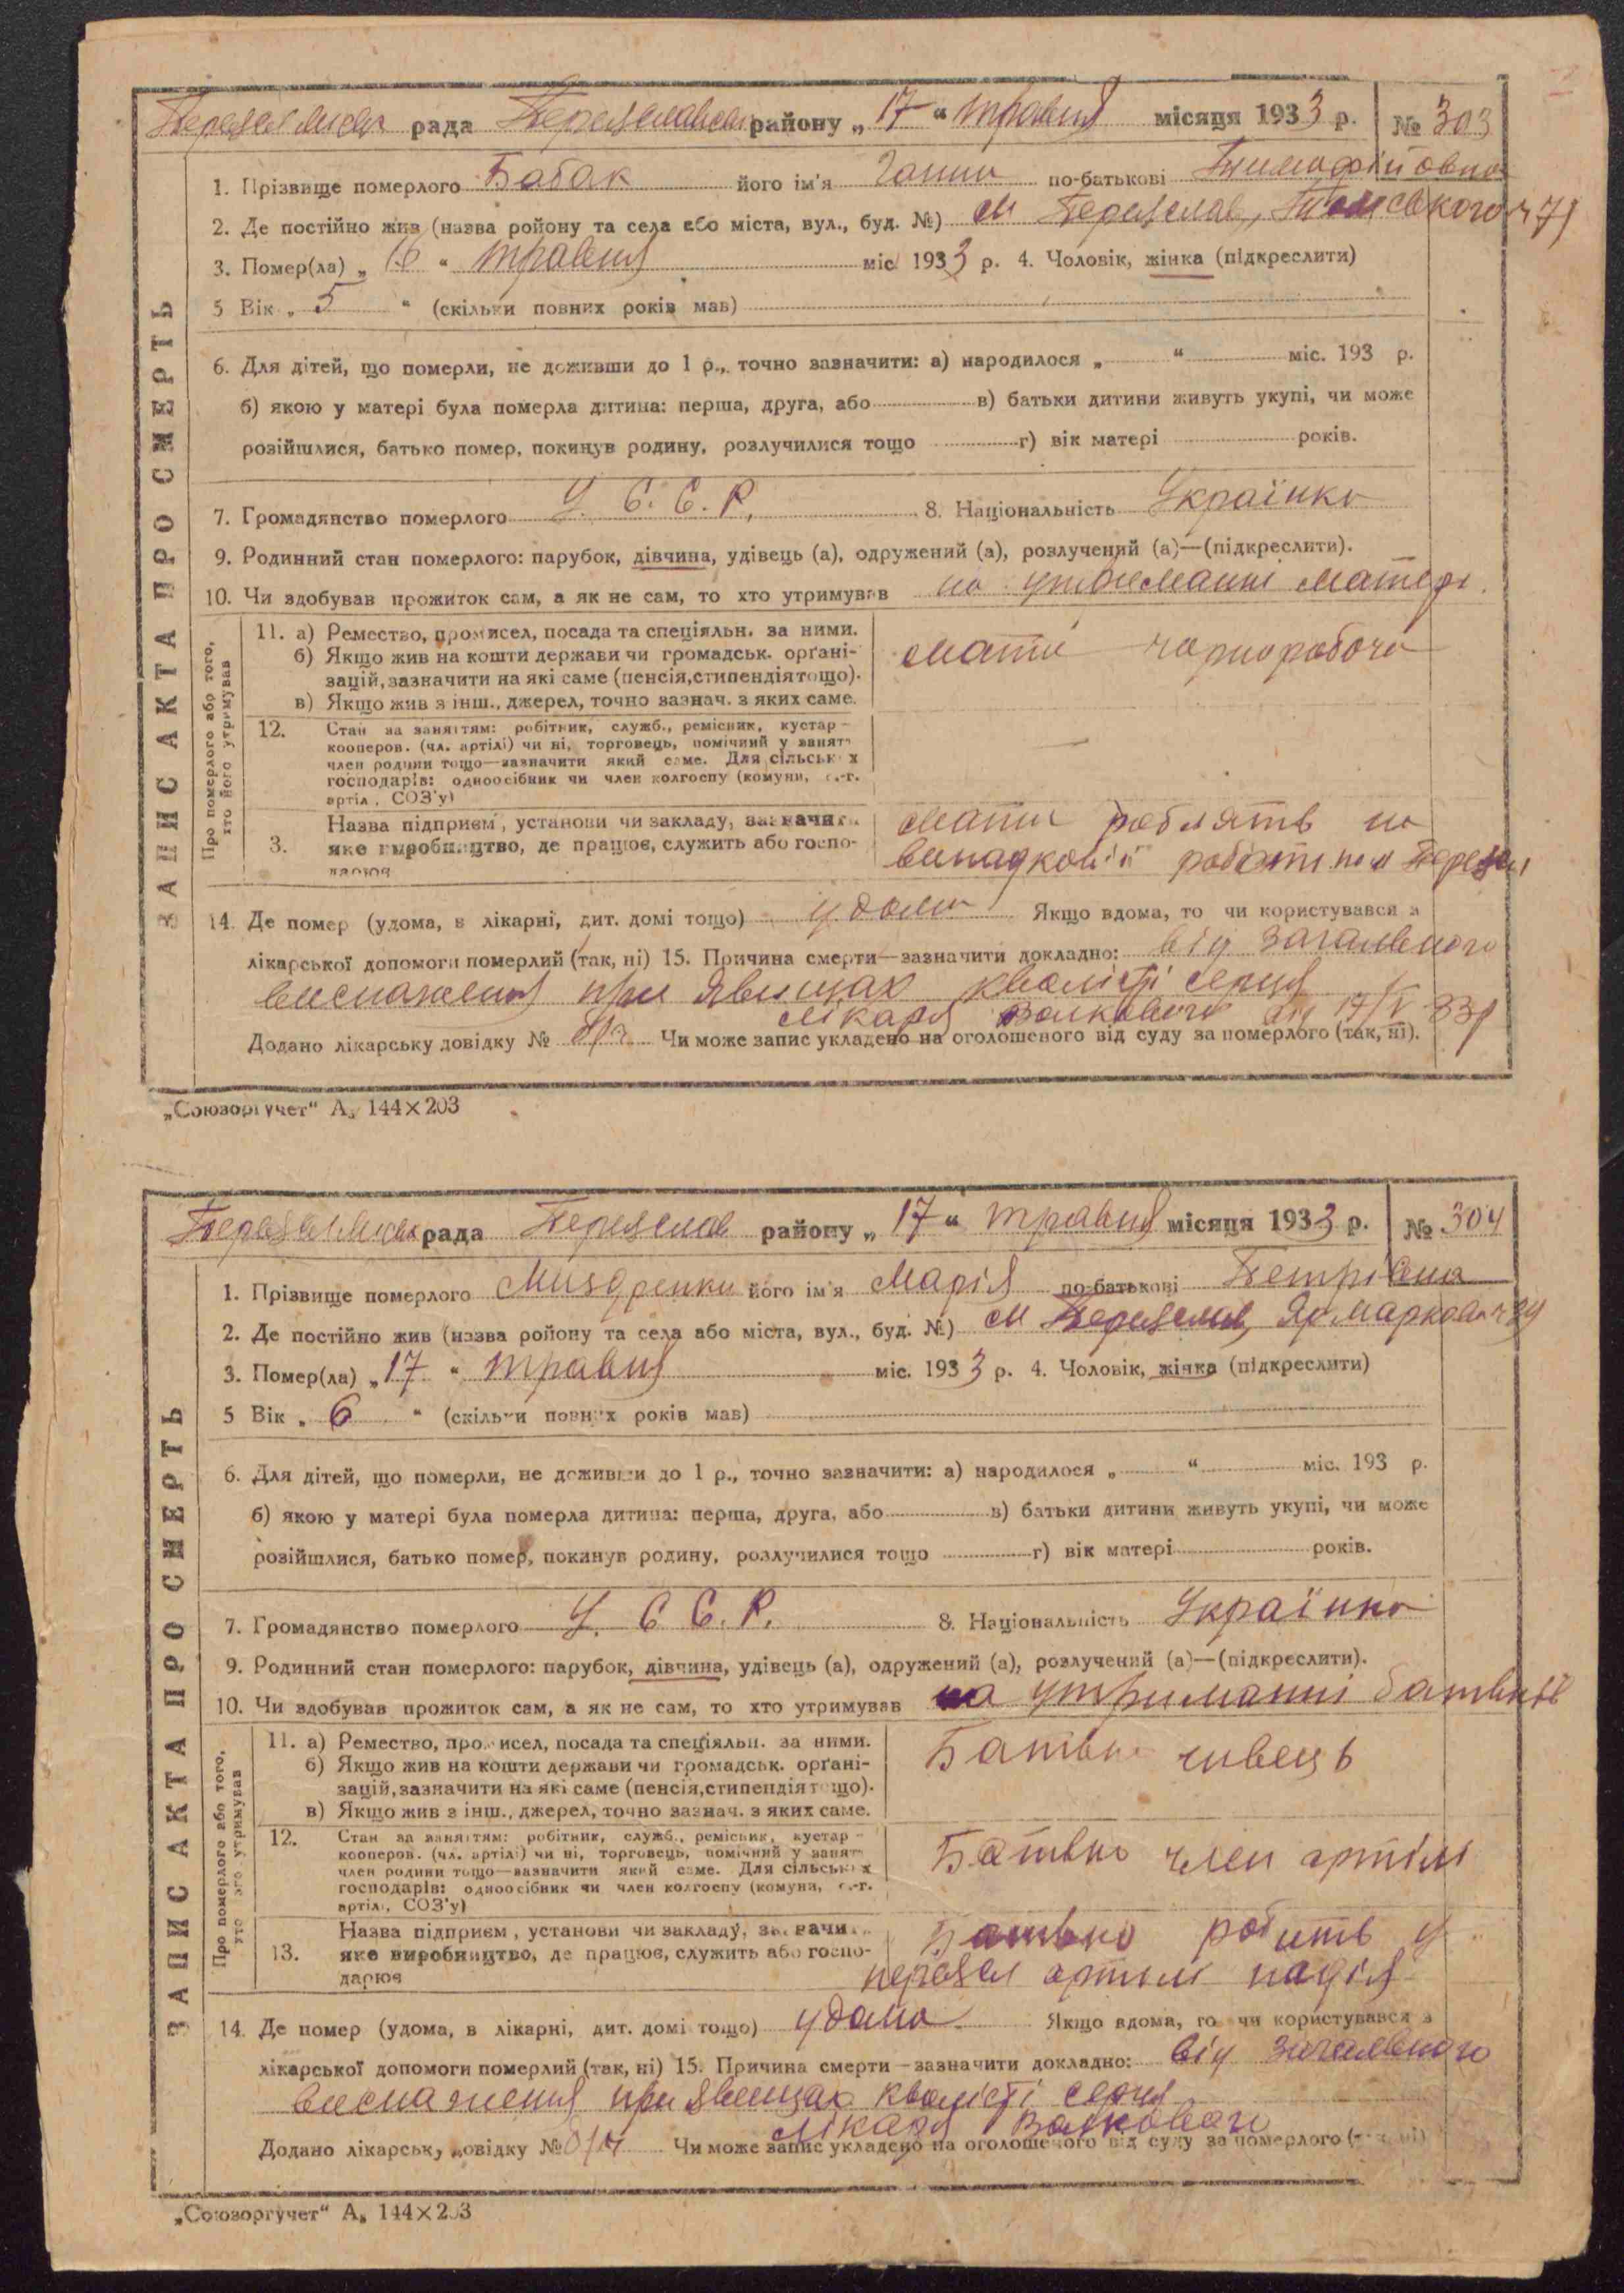 рада Переяславськ району „ 17 “ травня місяця 1933 р. № 303
ЗАПИС АКТА ПРО СМЕРТЬ
1. Прізвище померлого Бабак його ім'я Ганна по-батькові Тимофіївна
2. Де постійно жив (назва ройону та села або міста, вул., буд. №) м Переяслав, 71
3. Помер(ла) „ 16 “ травня міс 1933 р. 4. Чоловік, жінка (підкреслити)
5 Вік „ 5 “ (скільки повних років мав)
6. Для дітей, що померли, не доживши до 1 р., точно зазначити: а) народилося „ “ міс. 193 р.
б) якою у матері була померла дитина: перша, друга, або в) батьки дитини живуть укупі, чи може
розійшлися, батько помер, покинув родину, розлучилися тощо г) вік матері років.
7. Громадянство померлого У. С. С. Р. 8. Національність Українка
9. Родинний стан померлого: парубок, дівчина, удівець (а), одружений (а), розлучений (а)—(підкреслити).
10. Чи здобував прожиток сам, а як не сам, то хто утримував на утриманні матері.
Про померлого або того, хто його утримував
11. а) Ремество, промисел, посада та спеціяльн. за ними.
б) Якщо жив на кошти держави чи громадськ. орґані-
зацій, зазначити на які саме (пенсія, стипендія тощо).
в) Якщо жив з інш., джерел, точно зазнач. з яких саме.
мати чорноробоча
12. Стан за заняттям: робітник, служб., ремісник, кустар –
кооперов. (чл. артілі) чи ні, торговець, помічний у занят
член родини тощо—зазначити який саме. Для сільськ х
господарів: одноосібник чи член колгоспу (комуни, с.-г.
артіл , СОЗ'у)
—
3. Назва підприєм , установи чи закладу, зазначити
яке виробництво, де працює, служить або госпо-
дарює
мати роблять на
випадковій роботи
14. Де помер (удома, в лікарні, дит. домі тощо) удома Якщо вдома, то чи користувався з
лікарської допомоги померлий (так, ні) 15. Причина смерти—зазначити докладно: від загального
виснаження при явищах кволісті серця
лікаря Волкового від 17/V 33р
Додано лікарську довідку № Чи може запис укладено на оголошеного від суду за померлого (так, ні).
„Союзоргучет“ А₃ 144×203
рада Переяслав району „ 17 “ травня місяця 1933 р. № 304
ЗАПИС АКТА ПРО СМЕРТЬ
1. Прізвище померлого Миздренко його ім'я Марія по-батькові Петрівна
2. Де постійно жив (назва ройону та села або міста, вул., буд. №) м Переяслав, Ярмаркова
3. Помер(ла) „ 17 “ травня міс. 1933 р. 4. Чоловік, жінка (підкреслити)
5 Вік „ 6 “ (скільки повних років мав)
6. Для дітей, що померли, не доживши до 1 р., точно зазначити: а) народилося „ “ міс. 193 р.
б) якою у матері була померла дитина: перша, друга, або в) батьки дитини живуть укупі, чи може
розійшлися, батько помер, покинув родину, розлучилися тощо г) вік матері років.
7. Громадянство померлого У. С. С. Р. 8. Національність Українка
9. Родинний стан померлого: парубок, дівчина, удівець (а), одружений (а), розлучений (а)—(підкреслити).
10. Чи здобував прожиток сам, а як не сам, то хто утримував на утриманні батьків
Про померлого або того, хто його утримував
11. а) Ремество, промисел, посада та спеціяльн. за ними.
б) Якщо жив на кошти держави чи громадськ. орґані-
зацій, зазначити на які саме (пенсія, стипендія тощо).
в) Якщо жив з інш., джерел, точно зазнач. з яких саме.
Батько чивець
12. Стан за заняттям: робітник, служб., ремісник, кустар –
кооперов. (чл. артілі) чи ні, торговець, помічний у занят
член родини тощо—зазначити який саме. Для сільських
господарів: одноосібник чи член колгоспу (комуни, с.-г.
артіл., СОЗ'у)
Батько член артілі
13. Назва підприєм , установи чи закладу, зазначити
яке виробництво, де працює, служить або госпо-
дарює
Батько робить у
артилі надія
14. Де помер (удома, в лікарні, дит. домі тощо) удома Якщо вдома, то чи користувався з
лікарської допомоги померлий (так, ні) 15. Причина смерти—зазначити докладно: від загального
виснаження при явищах кволісті серця
лікаря Волкового
Додано лікарську довідку № Чи може запис укладено на оголошеного від суду за померлого (так, ні)
„Союзоргучет“ А₃ 144×203